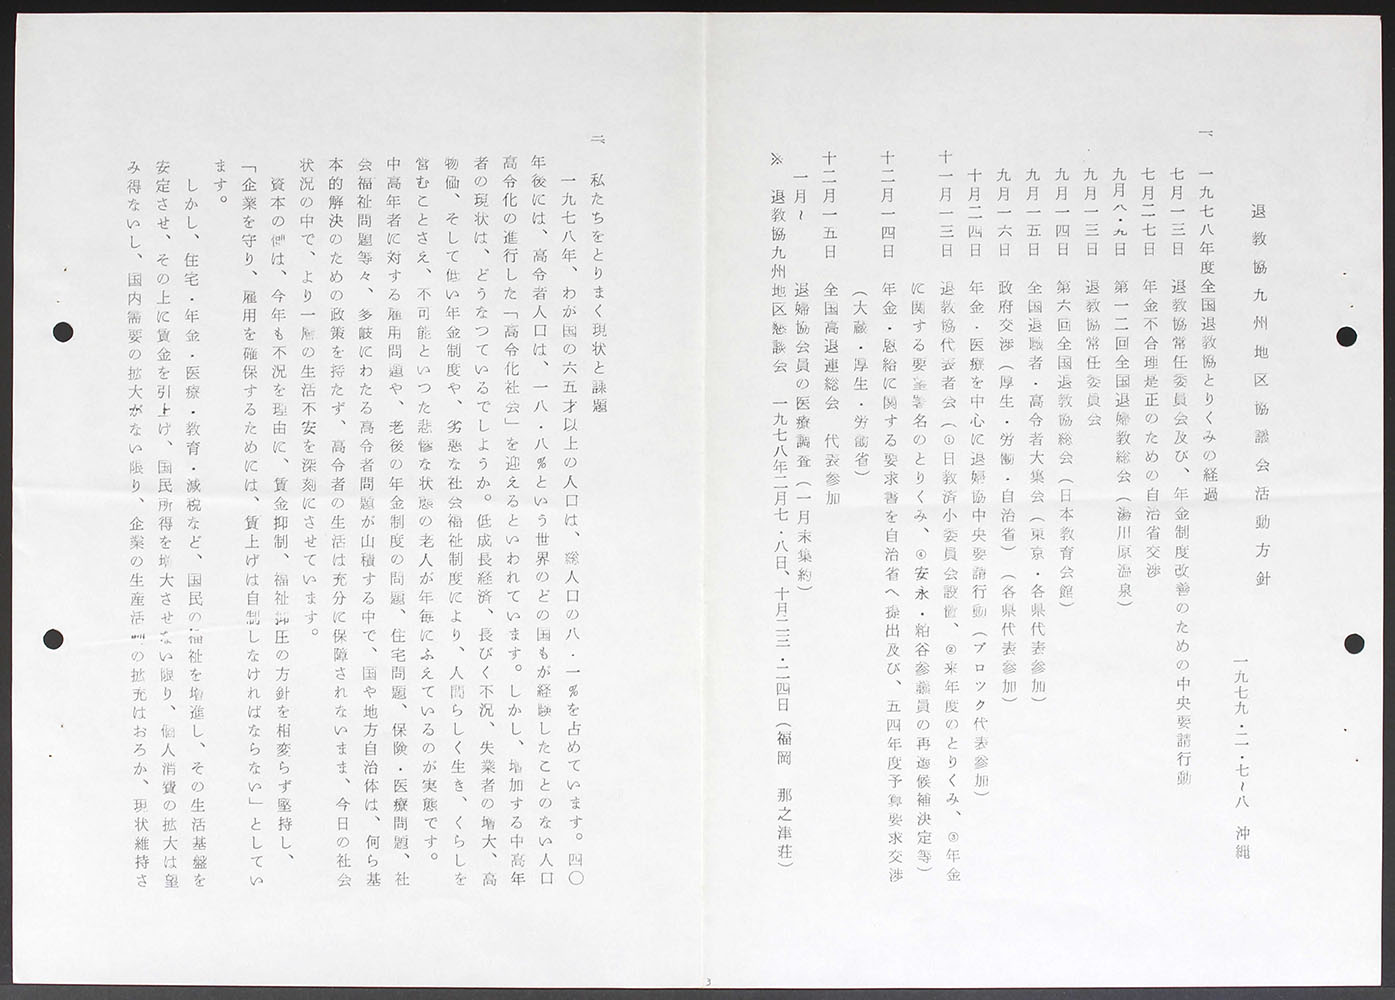 退教協九州地区協議会活動方針
一九七九・二・七~八 沖縄
一、一九七八年度全国退教協とりくみの経過
七月一三日 退教協常任委員会及び、年金制度改善のための中央要請行動
七月二七日 年金不合理是正のための自治省交渉
九月八・九日 第一二回全国退婦教総会(湯川原温泉)
九月一三日 退教協常任委員会
九月一四日 第六回全国退教協総会(日本教育会館)
九月一五日 全国退職者・高令者大集会(東京・各県代表参加)
九月一六日 政府交渉(厚生・労働・自治省)(各県代表参加)
十月二四日 年金・医療を中心に退婦協中央要請行動(ブロック代表参加)
十一月一三日 退教協代表者会(①日教済小委員会設置、②来年度のとりくみ、③年金
に関する要望署名のとりくみ、④安永・粕谷参議員の再選候補決定等)
十二月一四日 年金・恩給に関する要求書を自治省へ提出及び、五四年度予算要求交渉
(大蔵・厚生・労働省)
十二月一五日 全国高退連総会 代表参加
一月~ 退婦協会員の医療調査(一月末集約)
※ 退教協九州地区懇談会 一九七八年二月七・八日、十月二三・二四日(福岡 那之津荘)
二、私たちをとりまく現状と課題
一九七八年、わが国の六五才以上の人口は、総人口の八・一%を占めています。四〇
年後には、高令者人口は、一八・八%という世界のどの国もが経験したことのない人口
高令化の進行した「高令化社会」を迎えるといわれています。しかし、増加する中高年
者の現状は、どうなつているでしようか。低成長経済、長びく不況、失業者の増大、高
物価、そして低い年金制度や、劣悪な社会福祉制度により、人間らしく生き、くらしを
営むことさえ、不可能といつた悲惨な状態の老人が年毎にふえているのが実態です。
中高年者に対する雇用問題や、老後の年金制度の問題、住宅問題、保険・医療問題、社
会福祉問題等々、多岐にわたる高令者問題が山積する中で、国や地方自治体は、何ら基
本的解決のための政策を持たず、高令者の生活は充分に保障されないまま、今日の社会
状況の中で、より一層の生活不安を深刻にさせています。
資本の側は、今年も不況を理由に、賃金抑制、福祉抑圧の方針を相変らず堅持し、
「企業を守り、雇用を確保するためには、賃上げは自制しなければならない」としてい
ます。
しかし、住宅・年金・医療・教育・減税など、国民の福祉を増進し、その生活基盤を
安定させ、その上に賃金を引上げ、国民所得を増大させない限り、個人消費の拡大は望
み得ないし、国内需要の拡大がない限り、企業の生産活動の拡充はおろか、現状維持さ
3